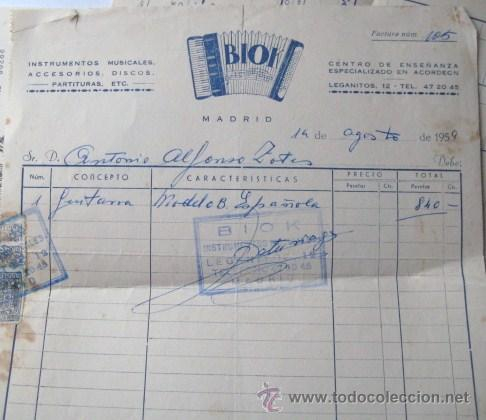 Factura núm. 105
BIOK
INSTRUMENTOS MUSICALES,
ACCESORIOS, DISCOS,
PARTITURAS, ETC.
CENTRO DE ENSEÑANZA
ESPECIALIZADO EN ACORDEON
LEGANITOS, 12 - TEL. 47 20 45
MADRID
14 de agosto de 1959
Sr. D. Antonio Alfonso Zotes Debe:
Núm. CONCEPTO CARACTERISTICAS PRECIO TOTAL
Pesetas Cts. Pesetas Cts.
1 Guitarra Modelo B. Española 840 -
BIOK
todocoleccion.net